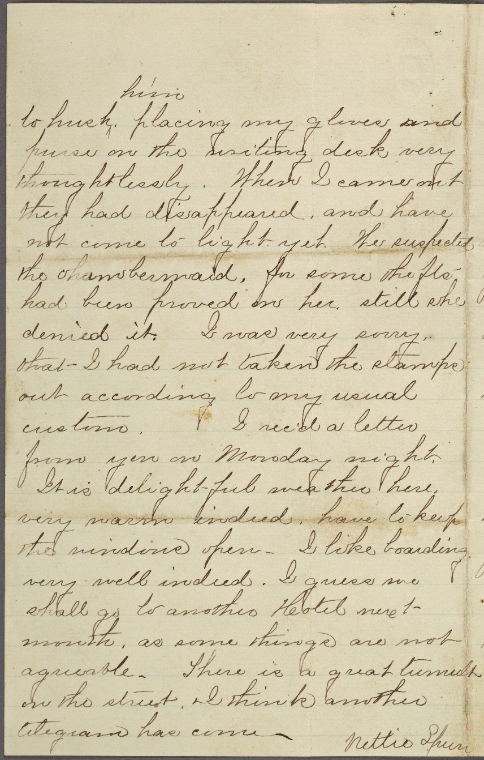 him
to hush, placing my gloves and
purse on the writing desk very
thoughtlessly. When I came out
they had disappeared, and have
not come to light yet. We suspected
the chambermaid, for some thefts
had been proved on her, still she
denied it. I was very sorry,
that I had not taken the stamps
out according to my usual
custom. I rec'd a letter
from you on Monday night.
It is delightful weather here,
very warm indeed, have to keep
the windows open - I like boarding
very well indeed. I guess we
shall go to another Hotel next
month, as some things are not
agreeable - There is a great tumult
on the street, & I think another
telegram has come -
Nettie